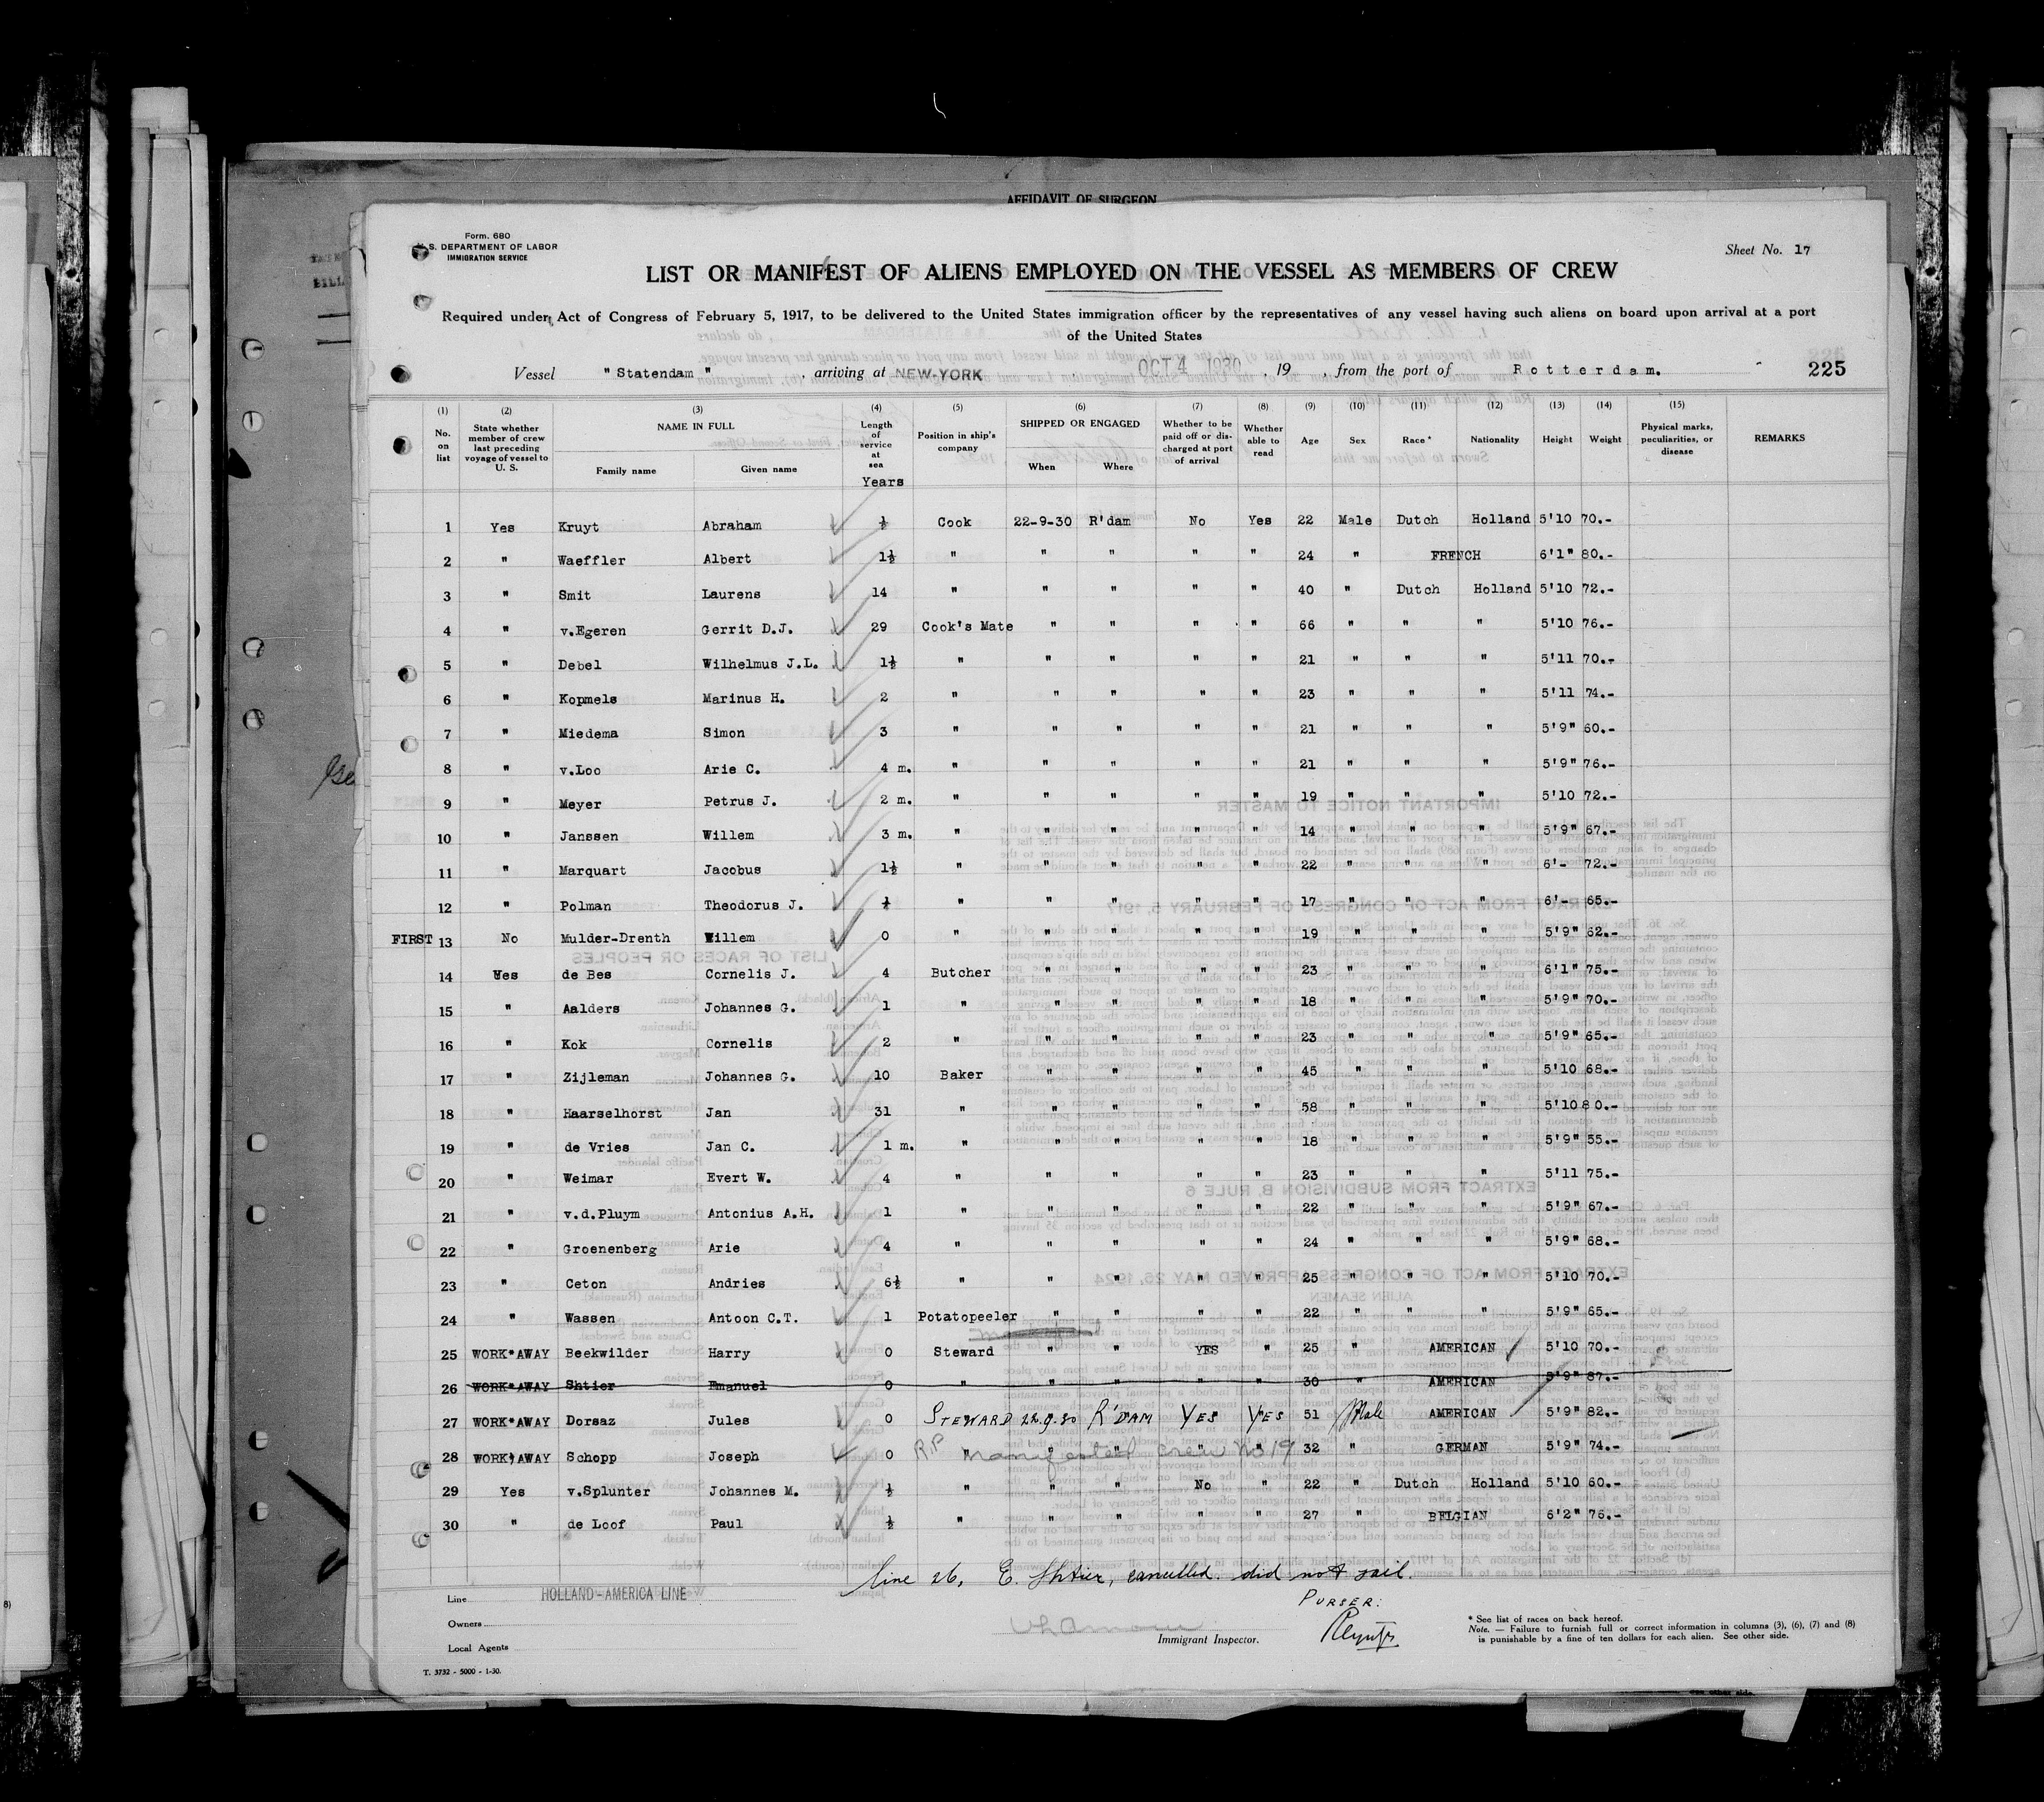 AFFIDAVIT OF SURGEON
Form. 680
U. S. DEPARTMENT OF LABOR
IMMIGRATION SERVICE
Sheet No. 17
LIST OR MANIFEST OF ALIENS EMPLOYED ON THE VESSEL AS MEMBERS OF CREW
Required under Act of Congress of February 5, 1917, to be delivered to the United States immigration officer by the representatives of any vessel having such aliens on board upon arrival at a port
of the United States
Vessel "Statendam", arriving at NEW-YORK OCT 4 1930, 19 , from the port of Rotterdam. 225
(1) (2) (3) (4) (5) (6) (7) (8) (9) (10) (11) (12) (13) (14) (15)
No. on list | State whether member of crew last preceding voyage of vessel to U. S. | NAME IN FULL Family name Given name | Length of service at sea Years | Position in ship's company | SHIPPED OR ENGAGED When Where | Whether to be paid off or discharged at port of arrival | Whether able to read | Age | Sex | Race* | Nationality | Height | Weight | Physical marks, peculiarities, or disease | REMARKS
1 Yes Kruyt Abraham ½ Cook 22-9-30 R'dam No Yes 22 Male Dutch Holland 5'10 70.-
2 " Waeffler Albert 1½ " " " " " 24 " FRENCH 6'1" 80.-
3 " Smit Laurens 14 " " " " " 40 " Dutch Holland 5'10 72.-
4 " v.Egeren Gerrit D.J. 29 Cook's Mate " " " " 66 " " " 5'10 76.-
5 " Debel Wilhelmus J.L. 1½ " " " " " 21 " " " 5'11 70.-
6 " Kopmels Marinus H. 2 " " " " " 23 " " " 5'11 74.-
7 " Miedema Simon 3 " " " " " 21 " " " 5'9" 60.-
8 " v.Loo Arie C. 4 m. " " " " " 21 " " " 5'9" 76.-
9 " Meyer Petrus J. 2 m. " " " " " 19 " " " 5'10 72.-
10 " Janssen Willem 3 m. " " " " " 14 " " " 5'9" 67.-
11 " Marquart Jacobus 1½ " " " " " 22 " " " 6'- 72.-
12 " Polman Theodorus J. ½ " " " " " 17 " " " 6'- 65.-
FIRST 13 No Mulder-Drenth Willem 0 " " " " " 19 " " " 5'9" 62.-
14 Yes de Bes Cornelis J. 4 Butcher " " " " 23 " " " 6'1" 75.-
15 " Aalders Johannes G. 1 " " " " " 18 " " " 5'9" 70.-
16 " Kok Cornelis 2 " " " " " 23 " " " 5'9" 65.-
17 " Zijleman Johannes G. 10 Baker " " " " 45 " " " 5'10 68.-
18 " Haarselhorst Jan 31 " " " " " 58 " " " 5'10 80.-
19 " de Vries Jan C. 1 m. " " " " " 18 " " " 5'9" 55.-
20 " Weimar Evert W. 4 " " " " " 23 " " " 5'11 75.-
21 " v.d.Pluym Antonius A.H. 1 " " " " " 22 " " " 5'9" 67.-
22 " Groenenberg Arie 4 " " " " " 24 " " " 5'9" 68.-
23 " Ceton Andries 6½ " " " " " 25 " " " 5'10 70.-
24 " Wassen Antoon C.T. 1 Potatopeeler " " " " 22 " " " 5'9" 65.-
25 WORK*AWAY Beekwilder Harry 0 Steward " " YES " 25 " AMERICAN 5'10 70.-
26 WORK*AWAY Shtier Emanuel 0 " " " " " 30 " AMERICAN 5'9" 87.-
27 WORK*AWAY Dorsaz Jules 0 STEWARD 22.9.30 R'DAM YES YES 51 Male AMERICAN 5'9" 82.-
28 WORK*AWAY Schopp Joseph 0 " " " " " 32 " GERMAN 5'9" 74.-
manifested crew no 19
29 Yes v.Splunter Johannes M. ½ " " " No " 22 " Dutch Holland 5'10 60.-
30 " de Loof Paul ½ " " " " " 27 " BELGIAN 6'2" 76.-
Line 26, E. Shtier, cancelled. did not sail.
PURSER:
Line HOLLAND-AMERICA LINE
Owners
Local Agents
Immigrant Inspector.
* See list of races on back hereof.
Note. — Failure to furnish full or correct information in columns (3), (6), (7) and (8)
is punishable by a fine of ten dollars for each alien. See other side.
T. 3732 - 5000 - 1-30.